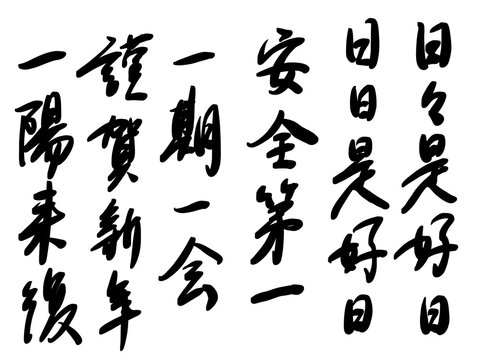 日々是好日
日日是好日
安全第一
一期一会
謹賀新年
一陽来復